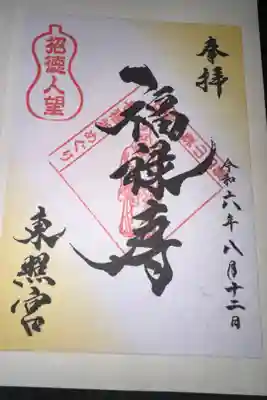 奉拝
令和六年八月十二日
福禄寿
招徳人望
東照宮